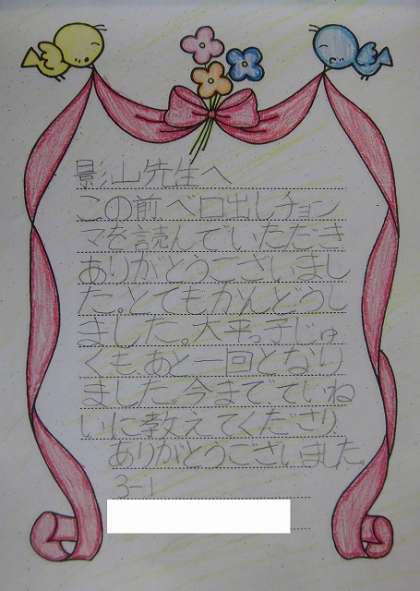 影山先生へ
この前ベロ出しチョン
マを読んでいただき
ありがとうございまし
た。とてもかんどうし
ました。太平っ子じゅ
くも、あと一回となり
ました。今までていね
いに教えてくださり
ありがとうございました。
3-1